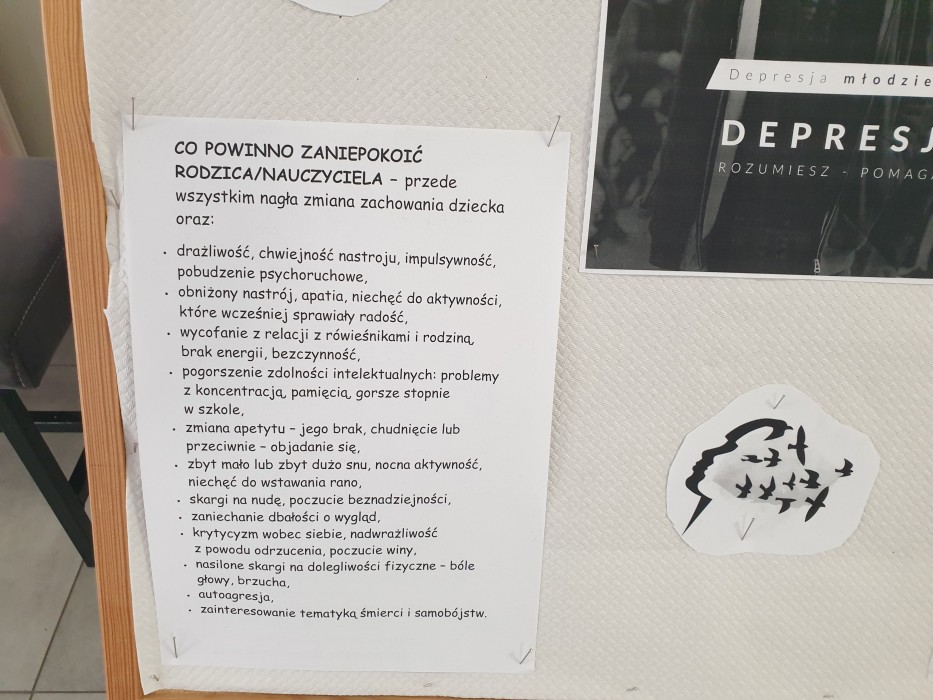 CO POWINNO ZANIEPOKOIĆ
RODZICA/NAUCZYCIELA – przede
wszystkim nagła zmiana zachowania dziecka
oraz:
• drażliwość, chwiejność nastroju, impulsywność,
pobudzenie psychoruchowe,
• obniżony nastrój, apatia, niechęć do aktywności,
które wcześniej sprawiały radość,
• wycofanie z relacji z rówieśnikami i rodziną,
brak energii, bezczynność,
• pogorszenie zdolności intelektualnych: problemy
z koncentracją, pamięcią, gorsze stopnie
w szkole,
• zmiana apetytu – jego brak, chudnięcie lub
przeciwnie – objadanie się,
• zbyt mało lub zbyt dużo snu, nocna aktywność,
niechęć do wstawania rano,
• skargi na nudę, poczucie beznadziejności,
• zaniechanie dbałości o wygląd,
• krytycyzm wobec siebie, nadwrażliwość
z powodu odrzucenia, poczucie winy,
• nasilone skargi na dolegliwości fizyczne – bóle
głowy, brzucha,
• autoagresja,
• zainteresowanie tematyką śmierci i samobójstw.
Depresja młodzie
DEPRESJ
ROZUMIESZ - POMAGA